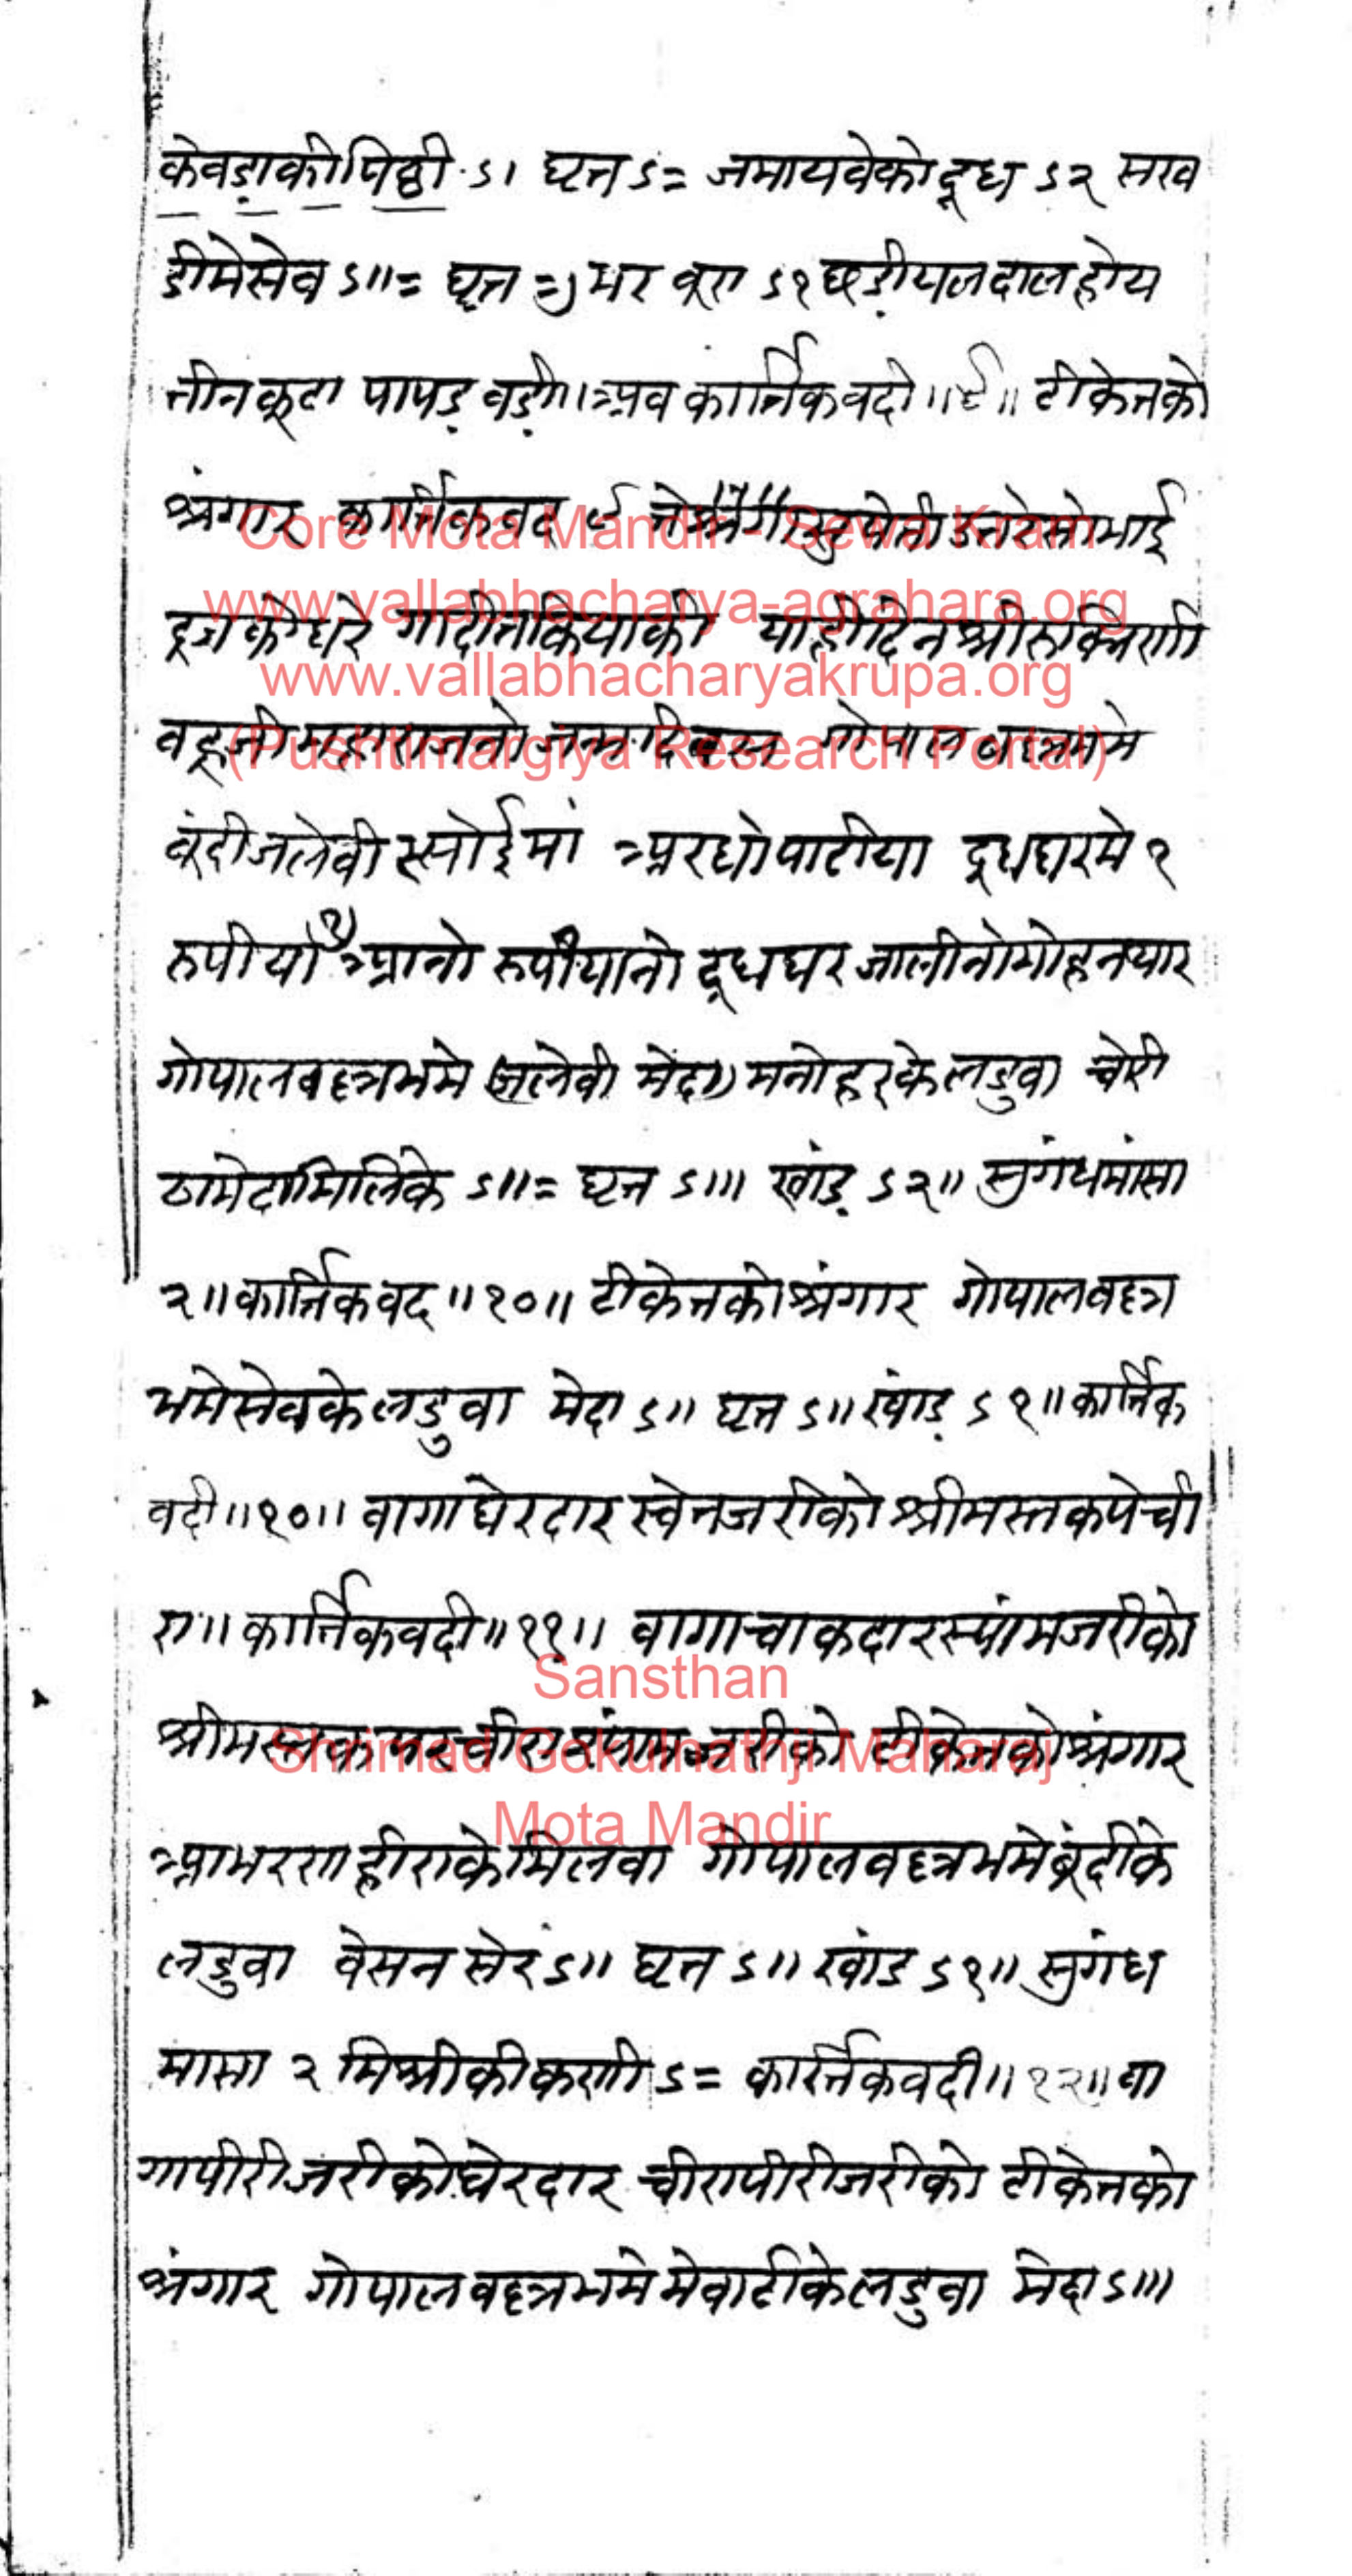 केवड़ाकीपिष्ठी ऽ। घृत ऽ= जमायवेकोदूध ऽ२ सख
डीमेसेव ऽ॥= घृत =) भर बूरा ऽ१ छड़ीयलदालहोय
तीनकूटा पापड़ वड़ी॥ अव कार्त्तिकवदी॥९॥ टीकेतको
श्रंगार कार्त्तिकवद ९ माई
दूजकोघरे गादीतकियाकी याहीदिन श्रीरुक्मिणी
वहूजी महाराजनो जन्मदिवस गोपालवल्लभमे
बूंदीजलेवी रसोईमां अरधोपाटीया दूधघरमे १
रुपीयो आनो रुपीयानो दूधघर जालीनोमोहनथार
गोपालवल्लभमे (जलेवी मेदा) मनोहरकेलडुवा चोरी
ठामेदामिलिके ऽ॥= घृत ऽ॥। खांड़ ऽ२॥ सुगंधमांसा
२॥ कार्त्तिकवद॥१०॥ टीकेतकोश्रंगार गोपालवल्ल
भमेसेवकेलडुवा मेदा ऽ॥ घृत ऽ॥ खांड़ ऽ१॥ कार्त्तिक
वदी॥१०॥ वागाघेरदार स्वेतजरीको श्रीमस्तकपेची
रा॥ कार्त्तिकवदी॥११॥ वागाचाकदारस्यांमजरीको
श्रीमस्तकपरचीरा स्यांमजरीको टीकेतकोश्रंगार
आभरणहीराकेमिलवा गोपालवल्लभमेबूंदीके
लडुवा वेसन सेर ऽ॥ घृत ऽ॥ खांड ऽ१॥ सुगंध
मासा २ मिश्रीकीकणी ऽ= कार्त्तिकवदी॥१२॥ वा
गापीरीजरीकोघेरदार चीरापीरीजरीको टीकेतको
श्रंगार गोपालवल्लभमेमेवाटीकेलडुवा मेदा ऽ॥।
Core Mota Mandir - Sewa Kram
www.vallabhacharya-agrahara.org
www.vallabhacharyakrupa.org
(Pushtimargiya Research Portal)
Sansthan
Shrimad Gokulnathji Maharaj
Mota Mandir